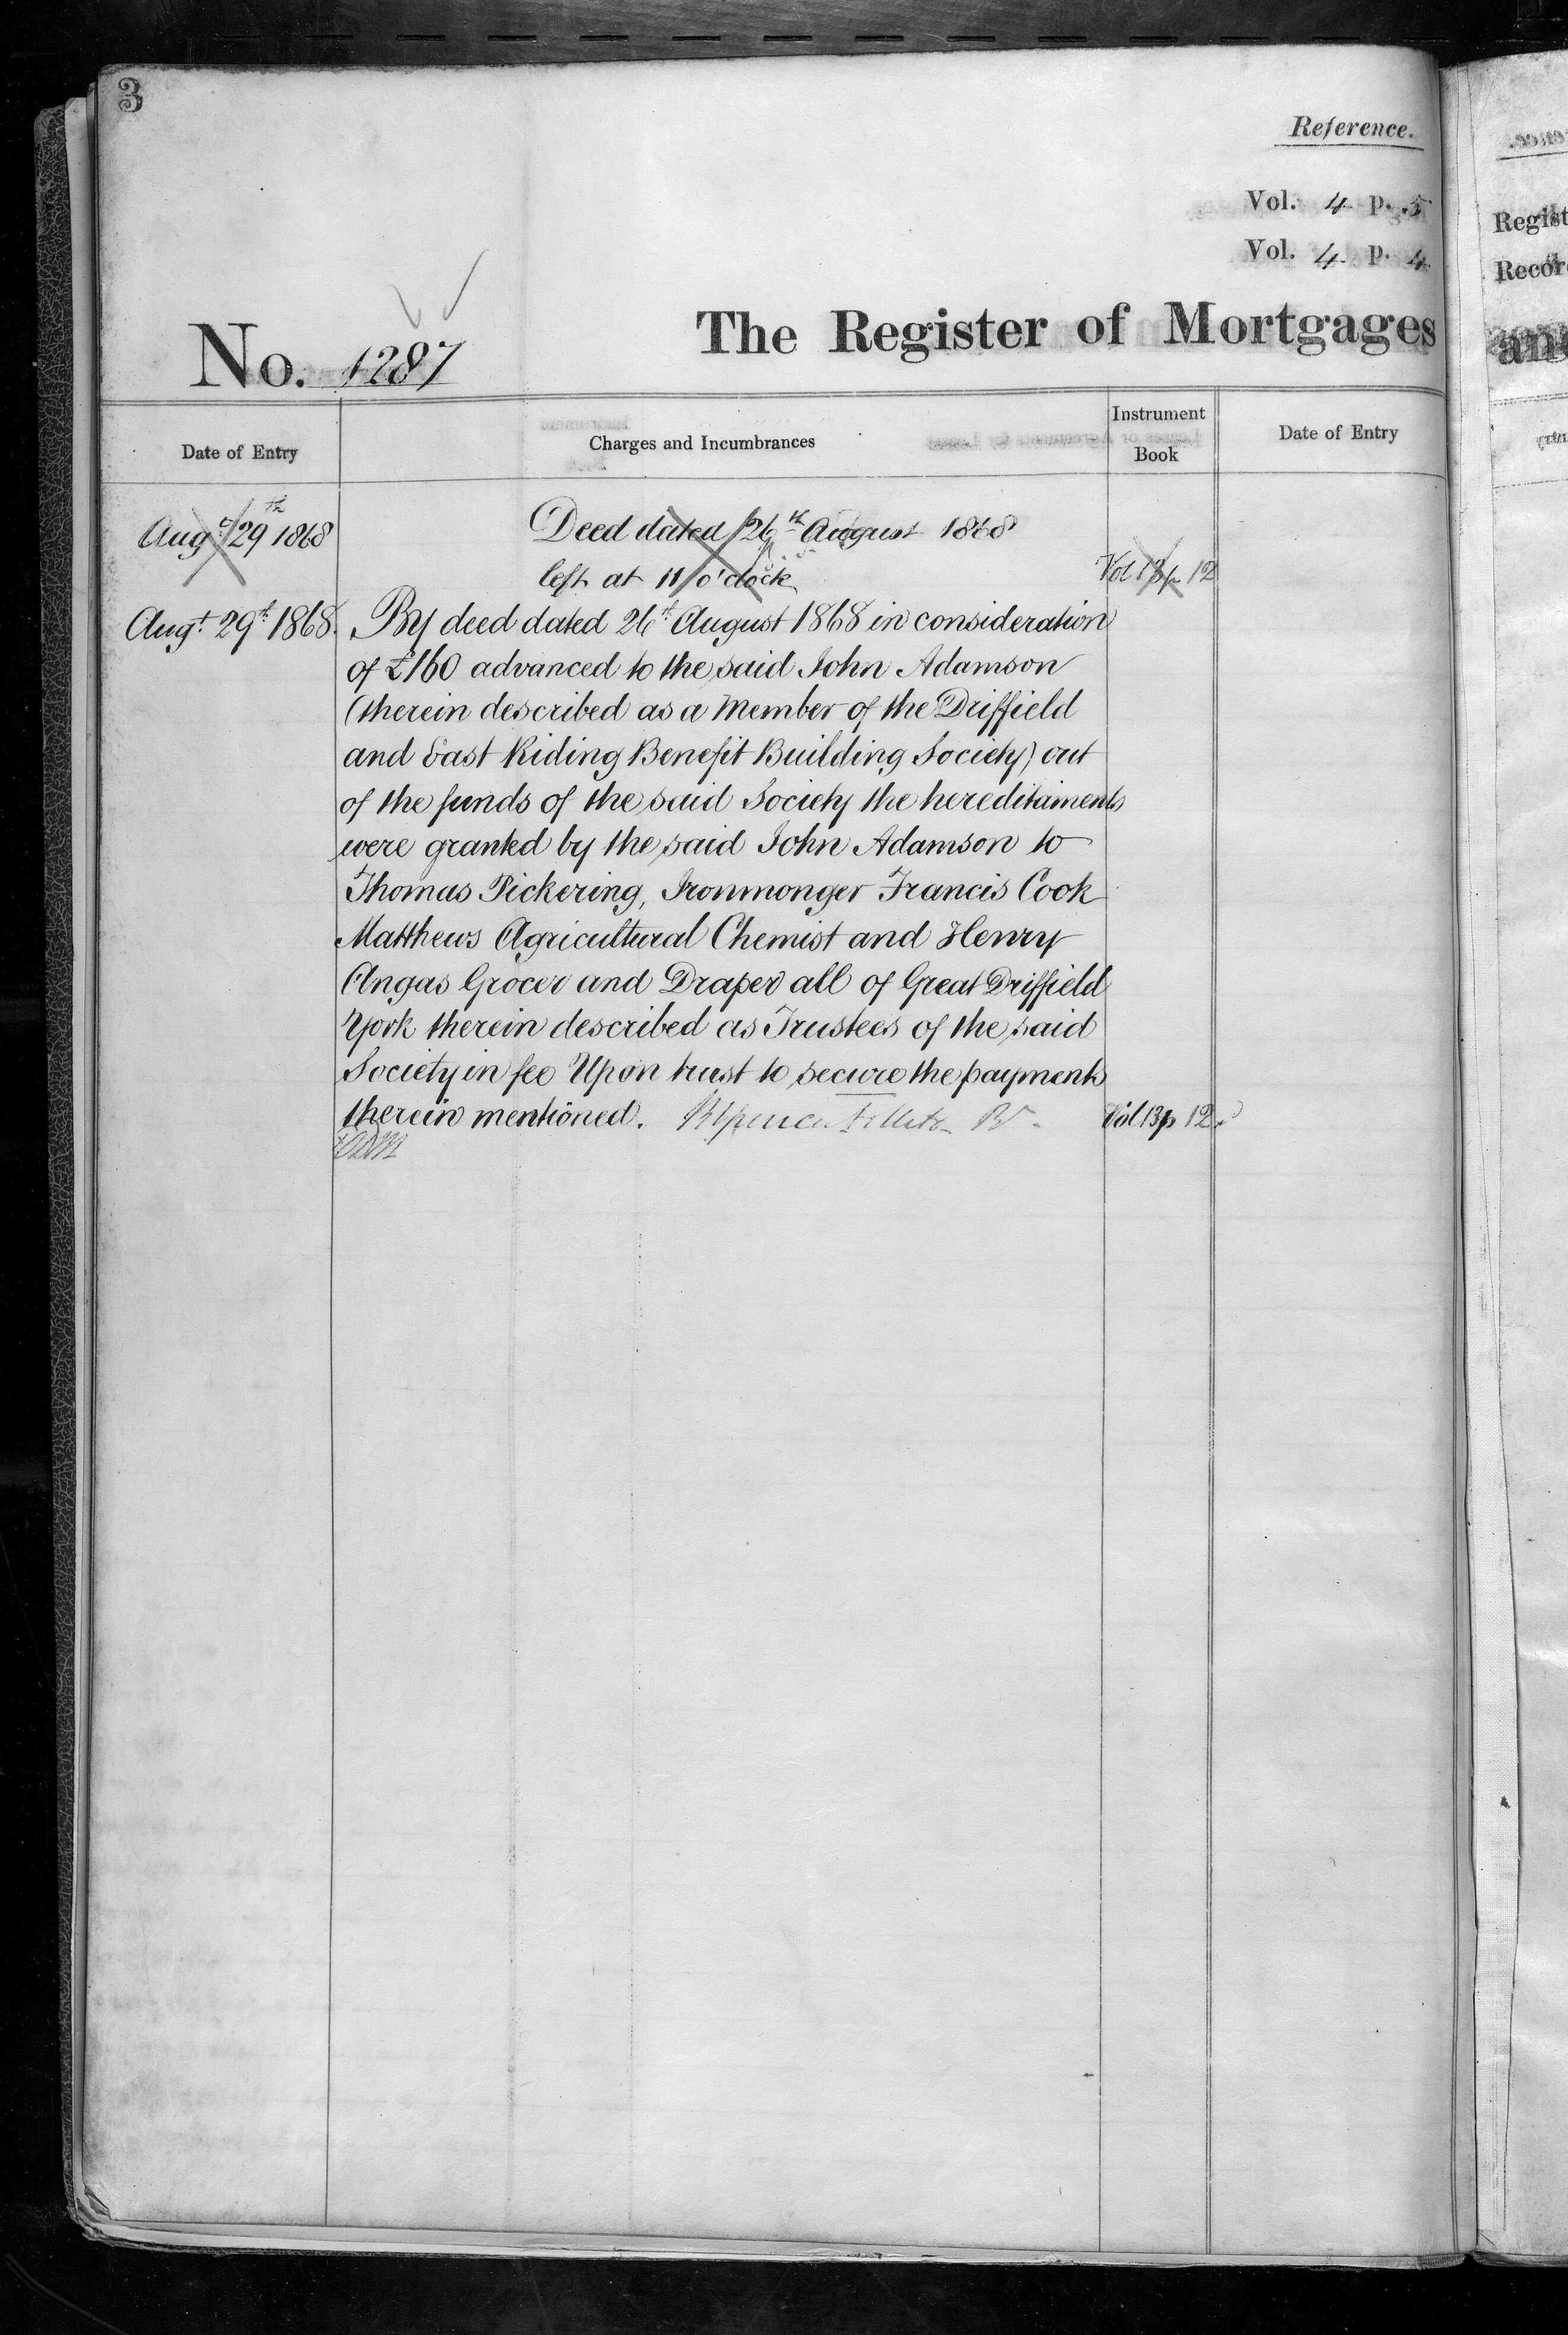 3
Reference.
Vol. 4 p. 5
Vol. 4 p. 4
No. 1287
The Register of Mortgages
Date of Entry
Charges and Incumbrances
Instrument Book
Date of Entry
Augt 29th 1868
Deed dated 26th August 1868
left at 11 o'clock
Vol 13 p 12
Augt. 29th 1868.
By deed dated 26th August 1868 in consideration
of £160 advanced to the said John Adamson
(therein described as a Member of the Driffield
and East Riding Benefit Building Society) out
of the funds of the said Society the hereditaments
were granted by the said John Adamson to
Thomas Pickering, Ironmonger Francis Cook
Matthews Agricultural Chemist and Henry
Angas Grocer and Draper all of Great Driffield
York therein described as Trustees of the said
Society in fee Upon trust to secure the payments
therein mentioned.
Vol 13 p 12.
Regist
Recor
and